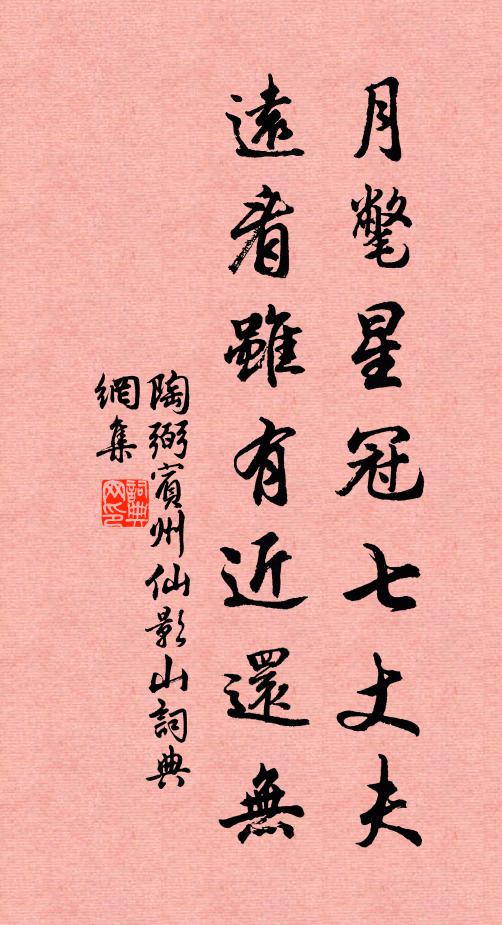 月氅星冠七丈夫
遠看雖有近還無
陶弼賓州仙影山詞典
網集
詞典
网印